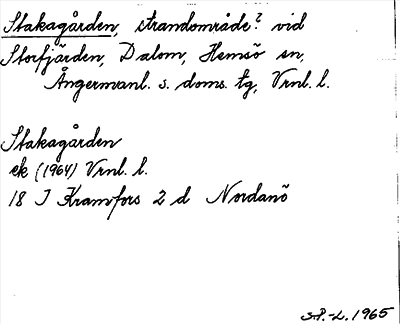 Stakagården, strandområde? vid
Storfjärden, Dalom, Hemsö sn,
Ångermanl. s. doms. tg, Vrnl. l.
Stakagården
ek (1964) Vrnl. l.
18 I Kramfors 2 d Nordanö
S.P.-L. 1965